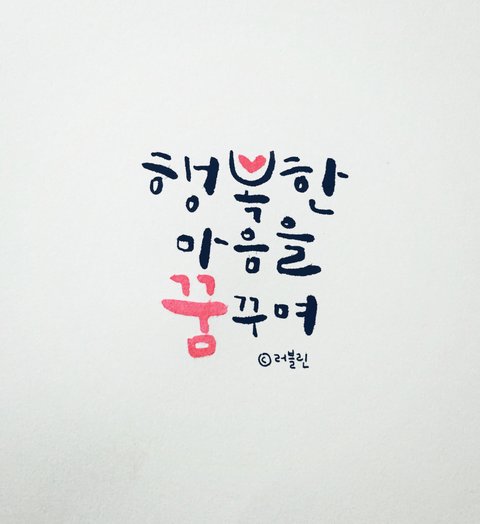 행복한
마음을
꿈꾸며
©러블린